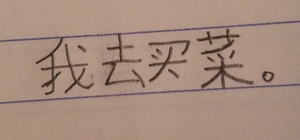 我去买菜。